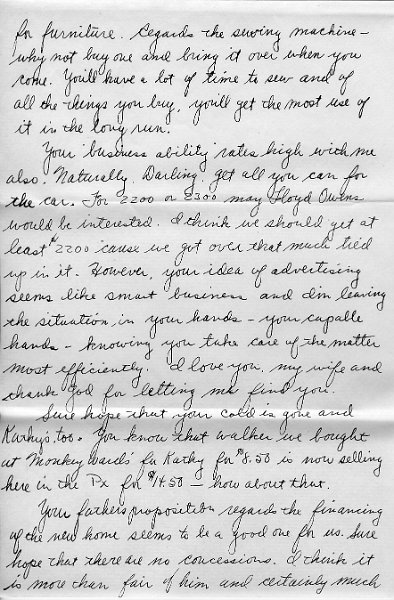 for furniture. Regards the sewing machine –
why not buy one and bring it over when you
come. You'll have a lot of time to sew and of
all the things you buy, you'll get the most use of
it in the long run.
Your 'business ability' rates high with me
also. Naturally, Darling, get all you can for
the car. For 2200 or 2300 may Floyd Owens
would be interested. I think we should get at
least $2200 'cause we got over that much tied
up in it. However, your idea of advertising
seems like smart business and I'm leaving
the situation in your hands – your capable
hands – knowing you take care of the matter
most efficiently. I love you, my wife and
thank God for letting me find you.
Sure hope that your cold is gone and
Kathy's, too. You know that walker we bought
at 'Monkey Wards' for Kathy for $8.50 is now selling
here in the Px for $14.50 – how about that.
Your fathers proposition regards the financing
of the new home seems to be a good one for us. Sure
hope that there are no concessions. I think it
is more than fair of him and certainly much